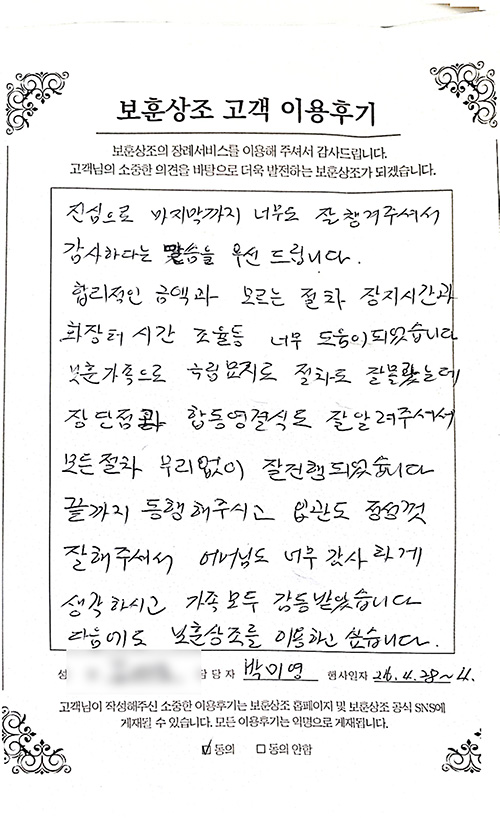 보훈상조 고객 이용후기
보훈상조의 장례서비스를 이용해 주셔서 감사드립니다.
고객님의 소중한 의견을 바탕으로 더욱 발전하는 보훈상조가 되겠습니다.
진심으로 마지막까지 너무도 잘 챙겨주셔서
감사하다는 말씀을 우선 드립니다.
합리적인 금액과 모르는 절차 장지시간과
화장터 시간 조율등 너무 도움이 되었습니다
보훈가족으로 국립묘지로 절차도 잘몰랐는데
장단점과 합동영결식도 잘알려주셔서
모든절차 무리없이 잘진행되었습니다
끝까지 동행해주시고 입관도 정성껏
잘해주셔서 어머님도 너무 감사하게
생각하시고 가족모두 감동받았습니다
다음에도 보훈상조를 이용하고 싶습니다.
성 담당자 박미영 행사일자 26.4.28~4.
고객님이 작성해주신 소중한 이용후기는 보훈상조 홈페이지 및 보훈상조 공식 SNS에
게재될 수 있습니다. 모든 이용후기는 익명으로 게재됩니다.
☑ 동의 □ 동의 안함